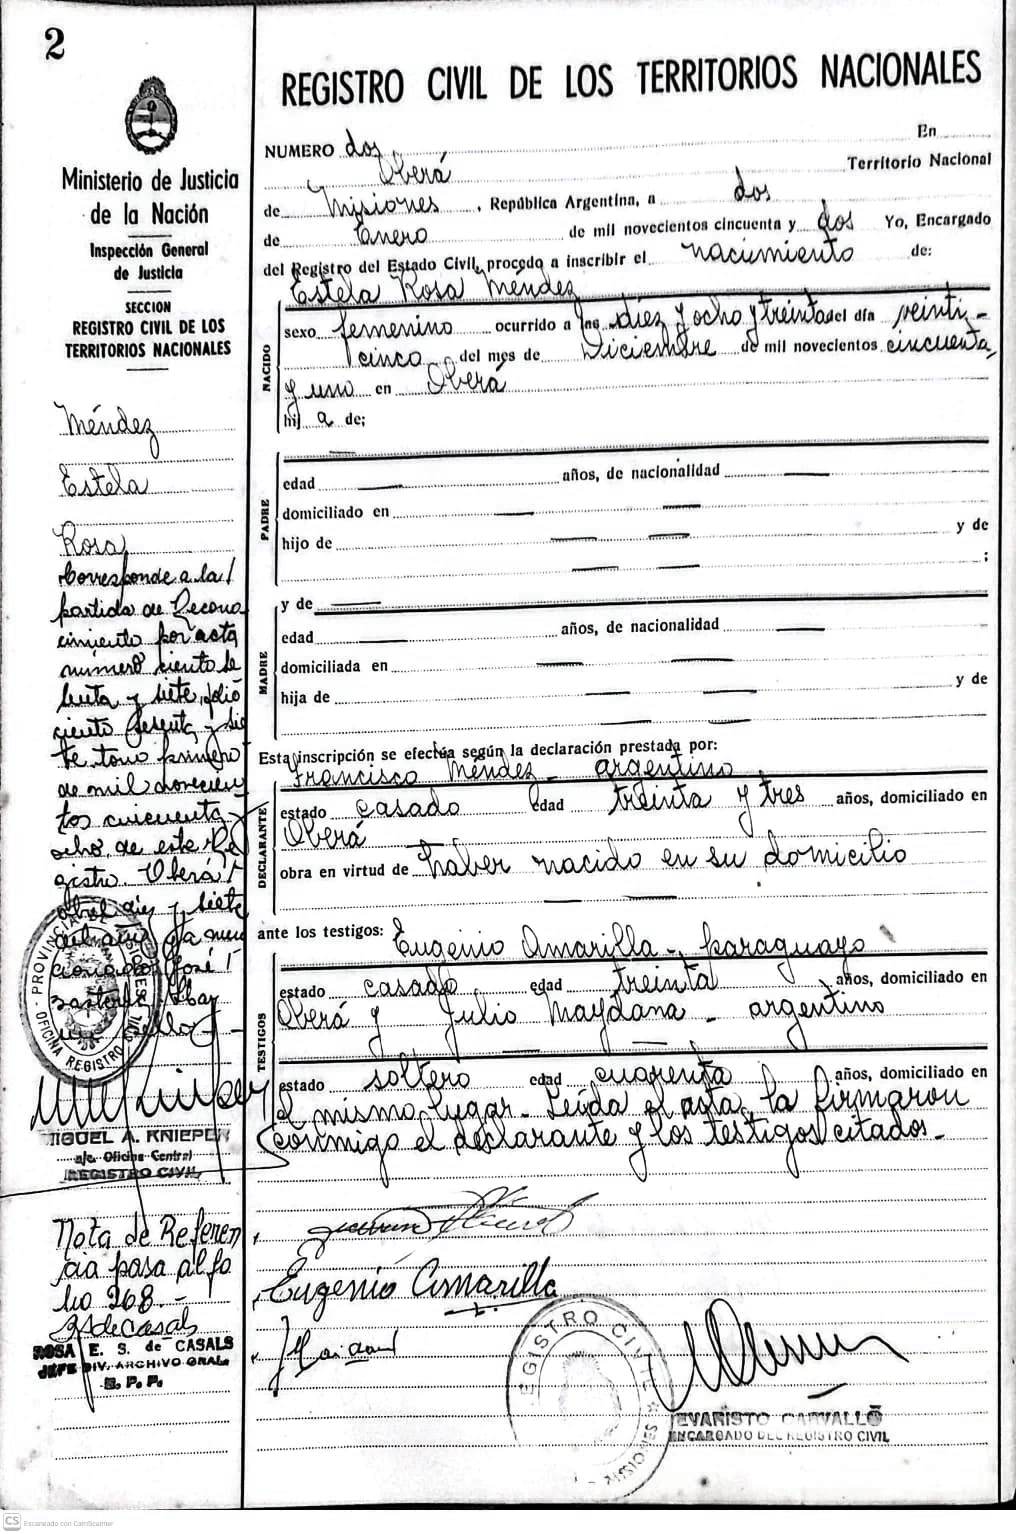 2
Ministerio de Justicia
de la Nación
Inspección General
de Justicia
SECCION
REGISTRO CIVIL DE LOS
TERRITORIOS NACIONALES
Méndez
Estela
Rosa
Corresponde a la
partida de Recono
cimiento por acta
número ciento se
senta y siete, folio
ciento sesenta y sie
te tomo primero
de mil novecien
tos cincuenta y
ocho de este Re
gistro. Oberá
abril diez y siete
del año ya men
cionado José
PROVINCIA DE MISIONES
OFICINA REGISTRO
MIGUEL A. KNIEPER
a/c. Oficina Central
REGISTRO CIVIL
Nota de Referen
cia pasa al fo
lio 268.-
RSdeCasals
ROSA E. S. de CASALS
JEFE DIV. ARCHIVO GRAL.
R. P. P.
REGISTRO CIVIL DE LOS TERRITORIOS NACIONALES
NUMERO dos En
Oberá Territorio Nacional
de Misiones, República Argentina, a dos
de Enero de mil novecientos cincuenta y dos Yo, Encargado
del Registro del Estado Civil, procedo a inscribir el nacimiento de:
Estela Rosa Méndez
NACIDO
sexo femenino ocurrido a las diez y ocho y treinta del día veinti-
cinco del mes de Diciembre de mil novecientos cincuenta
y uno en Oberá
hij a de;
PADRE
edad años, de nacionalidad
domiciliado en
hijo de y de
;
MADRE
y de
edad años, de nacionalidad
domiciliada en
hija de y de
Esta inscripción se efectúa según la declaración prestada por:
Francisco Méndez - argentino
DECLARANTE
estado casado edad treinta y tres años, domiciliado en
Oberá
obra en virtud de haber nacido en su domicilio
ante los testigos: Eugenio Amarilla -, paraguayo
TESTIGOS
estado casado edad treinta años, domiciliado en
Oberá y Julio Maydana - argentino
estado soltero edad cuarenta años, domiciliado en
el mismo lugar. Leída el acta, la firmaron
conmigo el declarante y los testigos citados.-
Eugenio Amarilla
REGISTRO CIVIL
MISIONES
EVARISTO CARVALLO
ENCARGADO DEL REGISTRO CIVIL
CS Escaneado con CamScanner